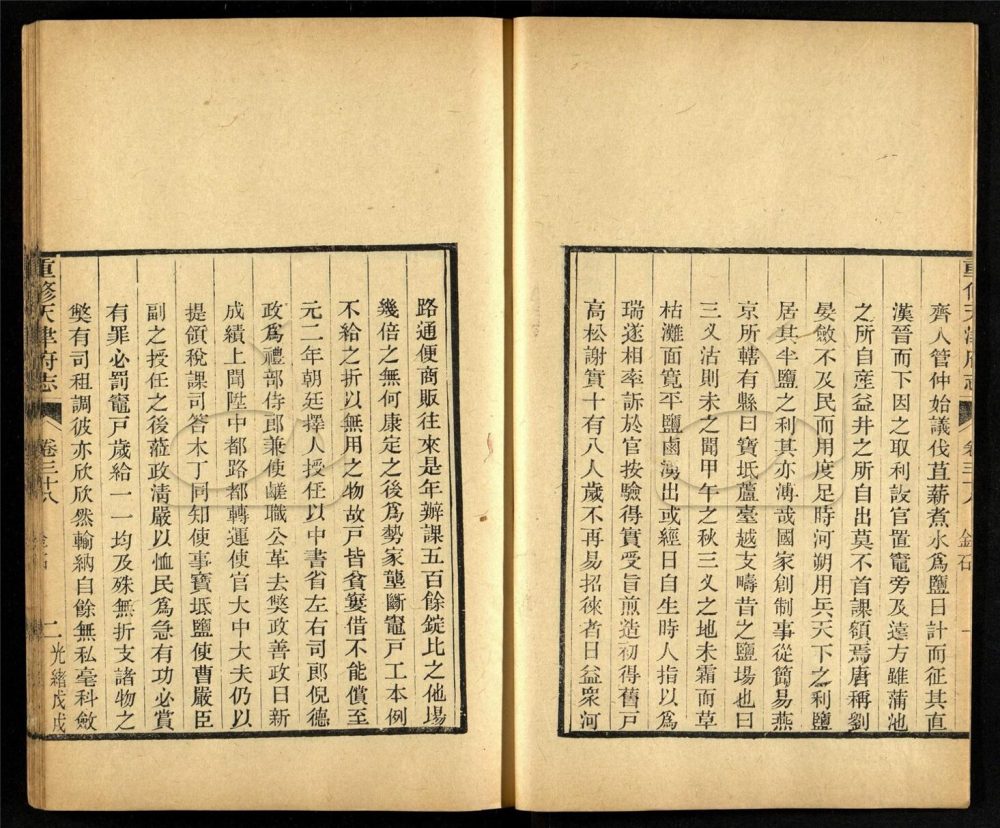 齊人管仲始議伐苴薪煮水爲鹽日計而征其直
漢晉而下因之取利設官置竈旁及遠方雖蒲池
之所自產益井之所自出莫不首課額焉唐稱劉
晏斂不及民而用度足時河朔用兵天下之利鹽
居其半鹽之利其亦溥哉國家創制事從簡易燕
京所轄有縣曰寶坻蘆臺越支疇昔之鹽場也曰
三义沽則未之聞甲午之秋三义之地未霜而草
枯灘面寬平鹽鹵湧出或經日自生時人指以爲
瑞遂相率訴於官按驗得實受旨煎造初得舊戸
高松謝實十有八人歲不再易招徠者日益衆河
路通便商販往來是年辦課五百餘錠比之他場
幾倍之無何康定之後爲勢家龔斷竈戸工本例
不給之折以無用之物故戸皆貧窶借不能償至
元二年朝廷擇人授任以中書省左右司郎倪德
政爲禮部侍郎兼使鹺職公革去獘政善政日新
成績上聞陞中都路都轉運使官大中大夫仍以
提領稅課司答木丁同知使事寶坻鹽使曹嚴臣
副之授任之後蒞政淸嚴以恤民爲急有功必賞
有罪必罰竈戸歲給一一均及殊無折支諸物之
獘有司租調彼亦欣欣然輸納自餘無私毫科斂
重修天津府志
卷三十八
金石
二
光緒戊戌